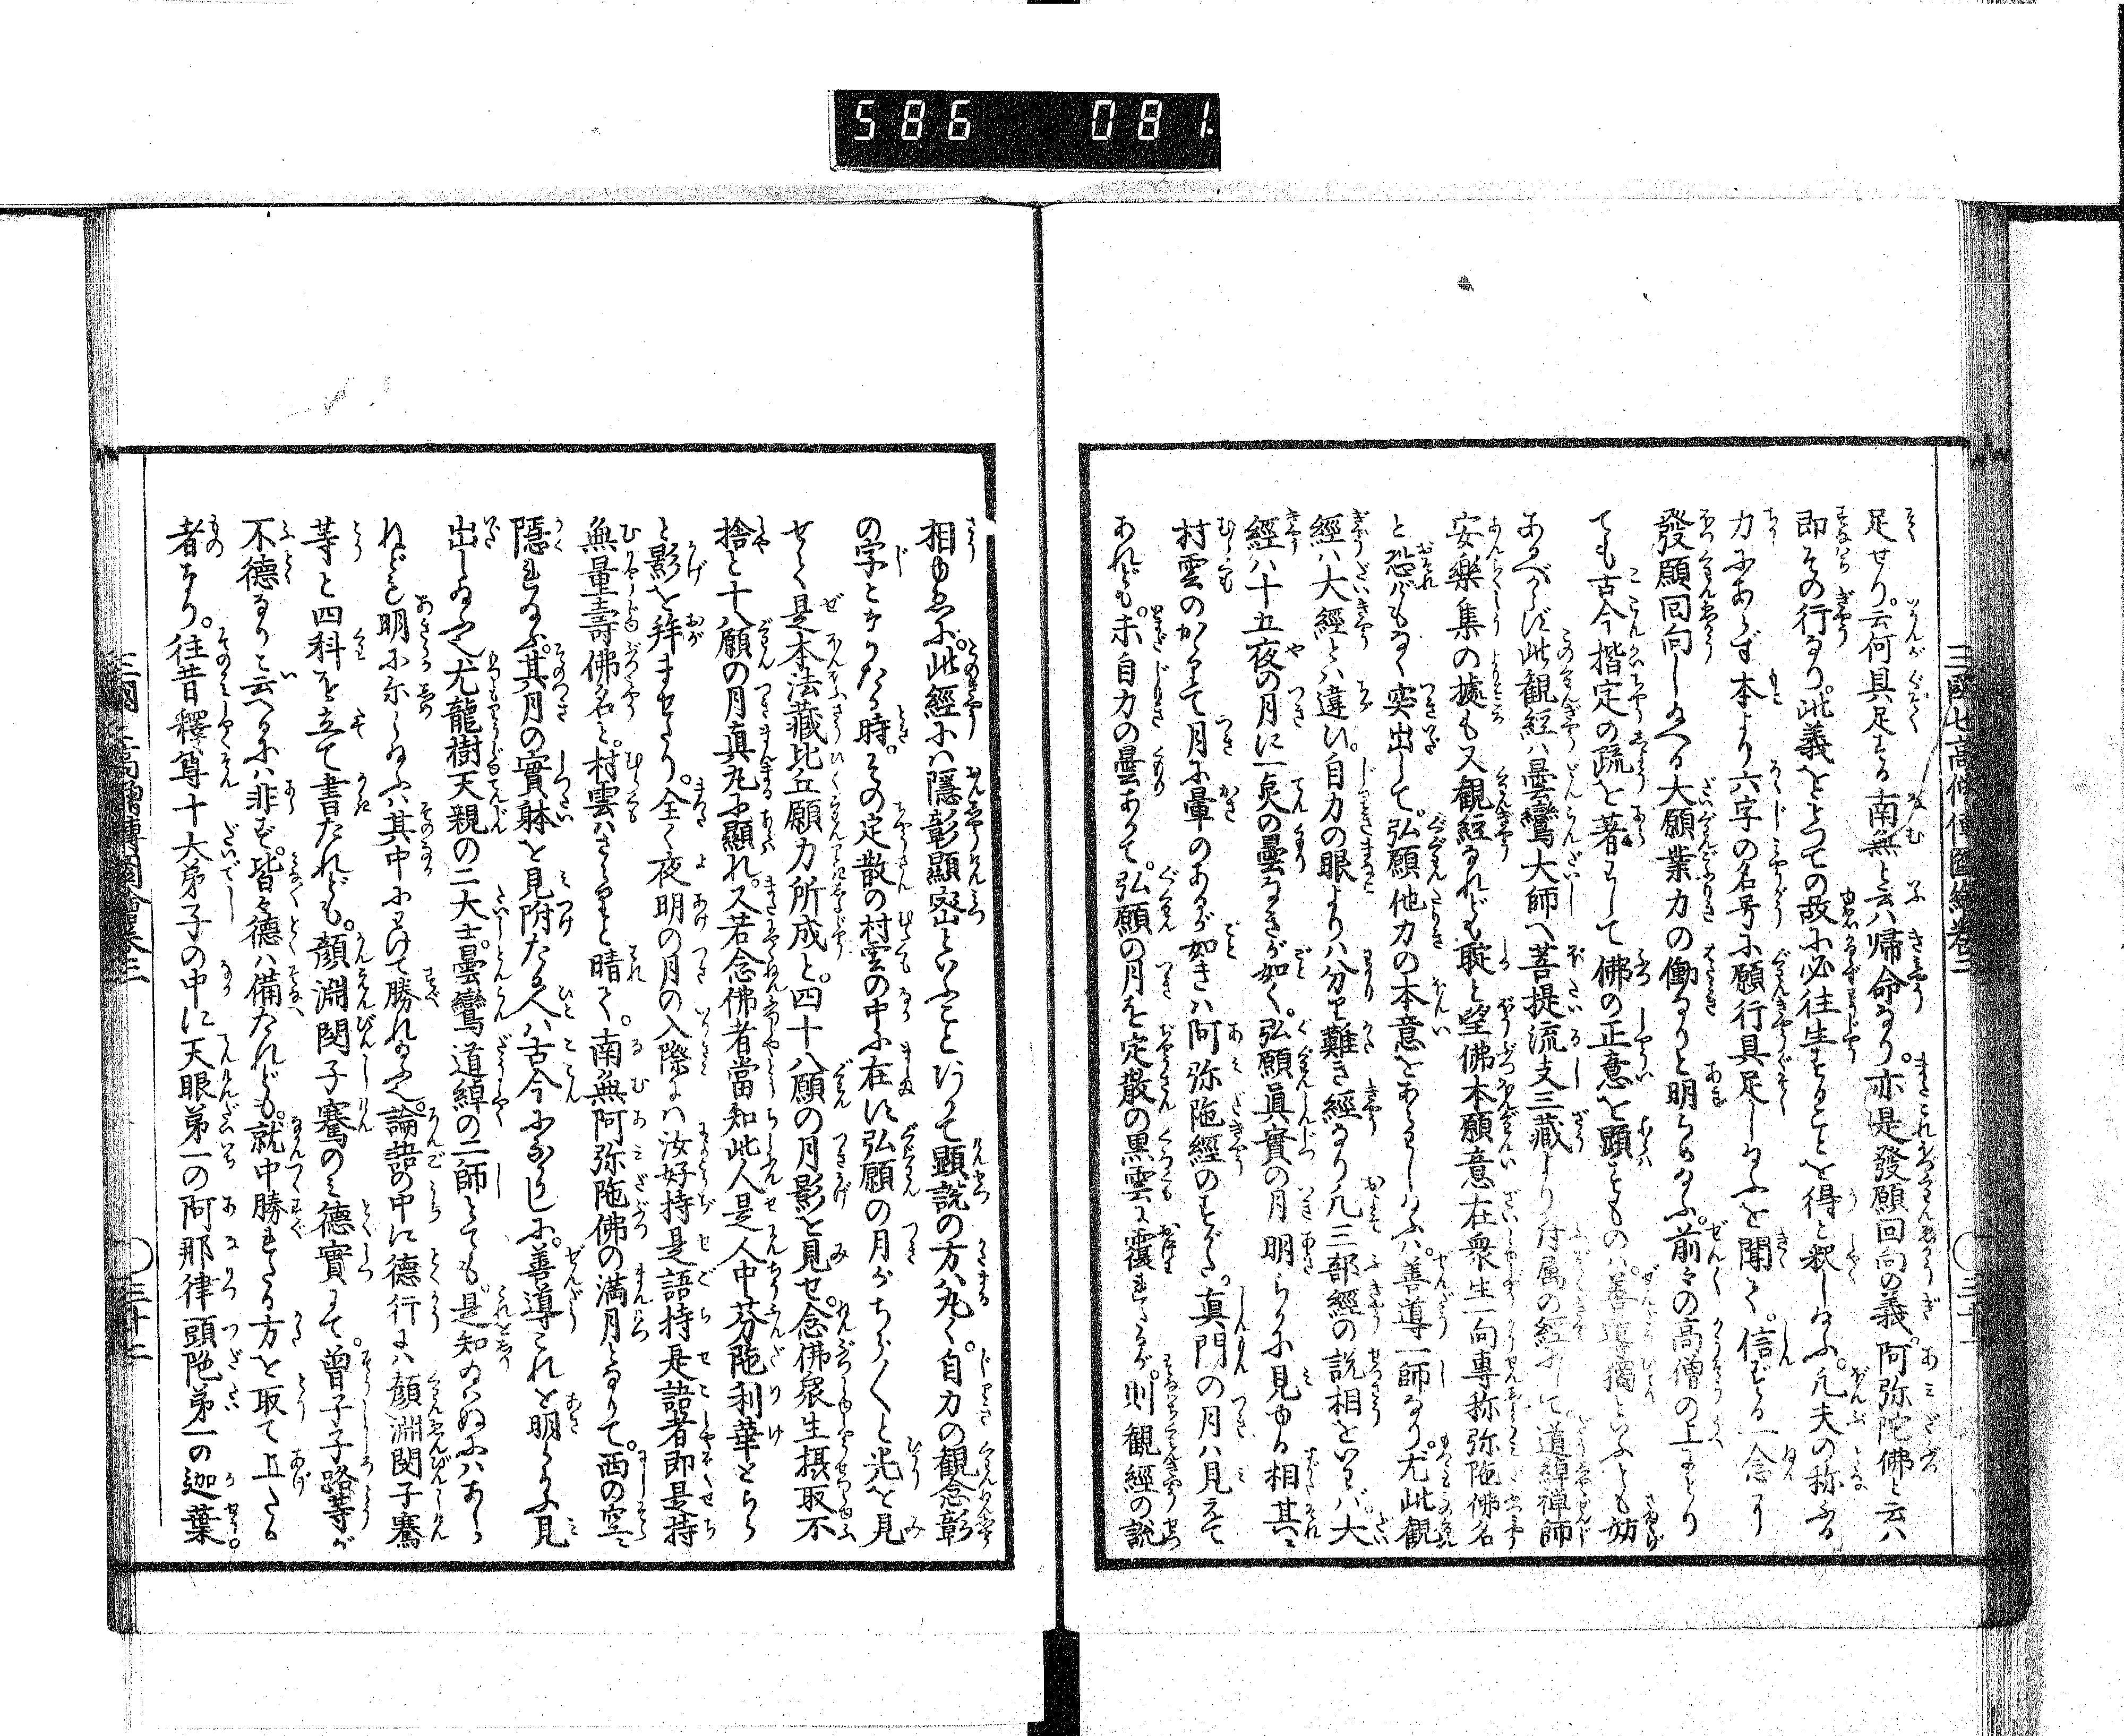 586 081
足せり。云何具足する南無と云ハ帰命なり。亦是發願回向の義。阿弥陀佛と云ハ
即その行なり。此義をとつての故に必往生することを得と釈し給ふ。凡夫の称ふる
力にあらず本より六字の名号に願行具足し給ふを聞て。信ずる一念より
發願回向し給へる大願業力の働なりと明らめ給ふ。前々の高僧の上にとり
ても古今揩定の疏を著わして佛の正意を顕すものハ。善導獨といふとも妨
あるべからず此観經ハ曇鸞大師へ菩提流支三藏より付属の經にて道綽禅師
安樂集の據も又観經なれども聢と望佛本願意在衆生一向専称弥陀佛名
と恐れげもなく突出して。弘願他力の本意をあらわし給ふハ。善導一師なり。尤此観
經ハ大經とハ違ひ。自力の眼よりハ分り難き經なり凡三部經の説相をいはバ。大
經ハ十五夜の月に一点の曇なきが如く。弘願眞實の月明らかに見ゆる相其ニ
村雲のかゝりて月に暈のあるが如きハ阿弥陀經のすがた。真門の月ハ見えて
あれども。未自力の曇ありて。弘願の月を定散の黒雲に覆れたるが。則観經の説
相ゆゑに。此經にハ隱彰顯密といふことありて顕説の方ハ丸く。自力の観念彰
の字となりたる時。その定散の村雲の中に在に弘願の月がちら〱と光を見
せて是本法藏比丘願力所成と。四十八願の月影を見せ。念佛衆生摂取不
捨と十八願の月真丸に顯れ。又若念佛者當知此人是人中芬陁利華とちら
と影を拜ませたり。全く夜明の月の入際にハ汝好持是語持是語者即是持
無量壽佛名と。村雲ハさらりと晴て。南無阿弥陁佛の満月となりて。西の空ニ
隱れ給ふ。其月の實躰を見附たる人ハ古今になかりしに。善導これを明らかに見
出し給へり尤龍樹天親の二大士。曇鸞道綽の二師とても。是知給ハぬにハあら
ねども明に示し給ふハ其中にわけて勝れ給へり。論語の中に德行にハ顏淵閔子騫
等と四科を立て書たれども。顏淵閔子騫のミ德實にて。曾子子路等が
不德なりと云へるにハ非ず。皆々德ハ備たれども。就中勝れたる方を取て上たる
者なり。往昔釋尊十大弟子の中に天眼第一の阿那律頭陁第一の迦葉。